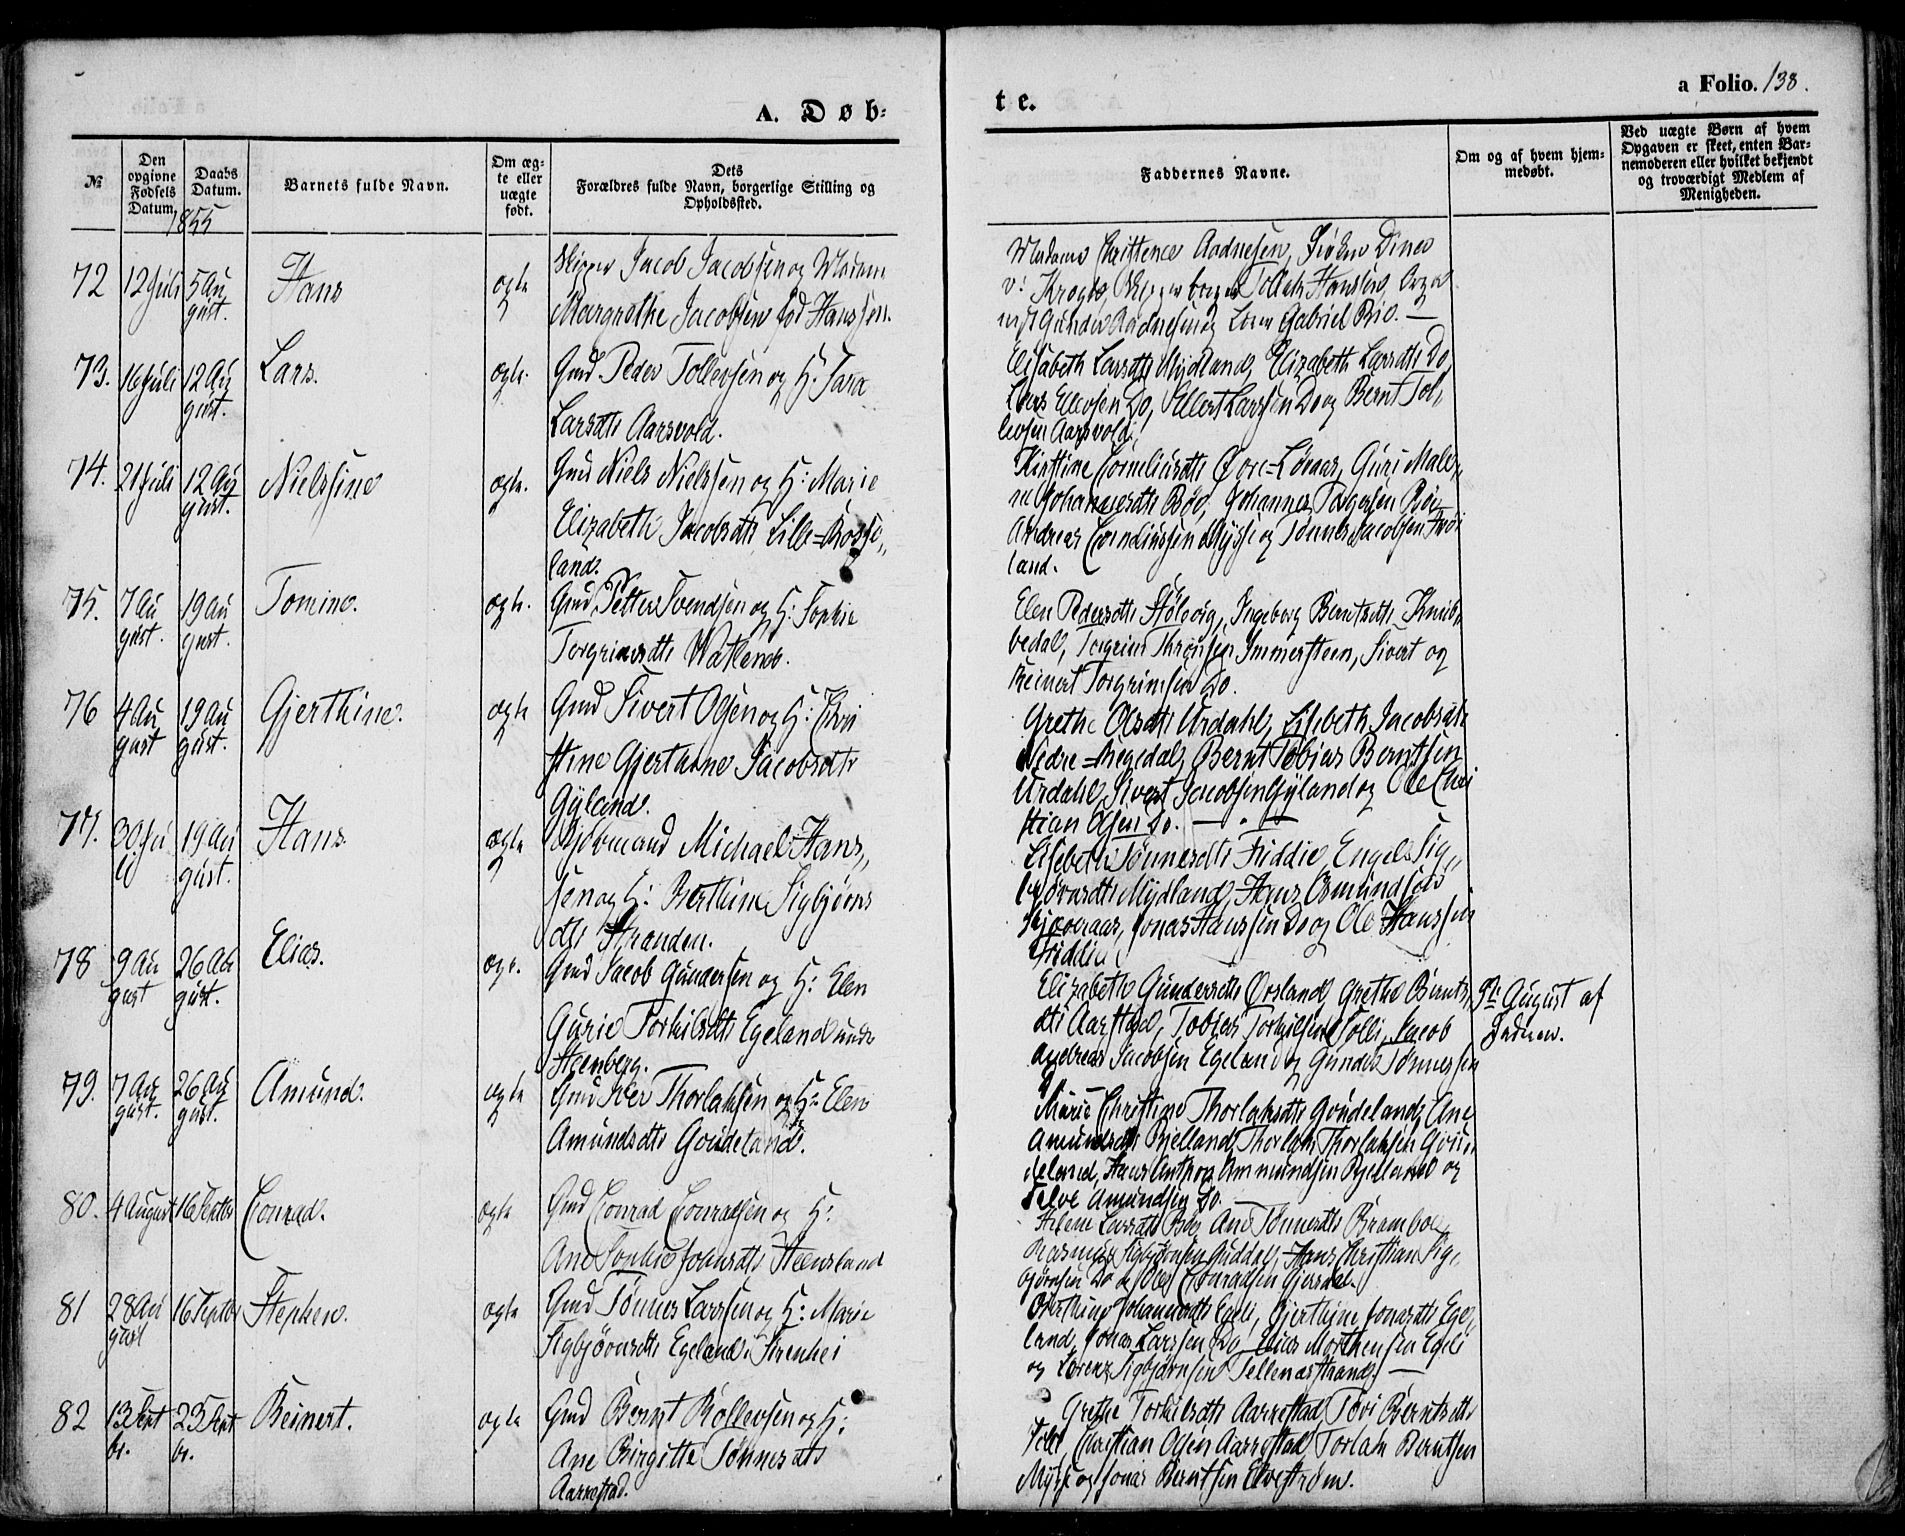 a Folio. 138.
A. Døb=
te.
№
Den opgivne Fødsels Datum.
Daabs Datum.
Barnets fulde Navn.
Om ægte eller uægte født.
Dets Forældres fulde Navn, borgerlige Stilling og Opholdssted.
Faddernes Navne.
Om og af hvem hjemmedøbt.
Ved uægte Børn af hvem Opgaven er skeet, enten Barnemoderen eller hvilket bekjendt og troværdigt Medlem af Menigheden.
1855
72 12 Juli 5 Au
gust.
Hans
ægte
Skipper Jacob Jacobsen og Madam
Margrethe Jacobsen fød Hanssen.
Madame Christence Aadnesen,
Tolleth Hanssen,
Gunder Aadnesen og Gabriel
73. 16 Juli 12 Au
gust.
Lars.
ægte.
Gmd Peder Tollevsen og H: Sara
Larsdtr Aarsvold.
Elisabeth Larsdtr Mydland, Elizabeth Larsdtr Do
Lars Ellevsen Do, Ellert Larssen Do og Bernt Tol„
levsen Aarsvold.
74. 21 Juli 12 Au
gust.
Nielssine
ægte.
Gmd Niels Nielssen og H: Marie
Elizabeth Jacobsdtr Lille=Rosse„
land.
Kirstine Corneliusdtr Guri Male„
ne Johannesdtr Bøe, Johannes
Andreas Corneliussen Mysse og Tønnes Jacobsen
land.
75. 7 Au
gust.
19 Au
gust.
Tomine.
ægte.
Gmd Petter Svendsen og H: Sophie
Torgrimsdtr Watene.
Elen Pedersdtr Ingeborg Berntsdtr
bedal, Torgrim Immersteen, Sivert og
Reinert Torgrimsen Do.
76 4 Au
gust
19 Au
gust.
Gjerthine.
ægte
Gmd Sivert Osen og H: Chri
stine Gjerthine Jacobsdtr
Gyland.
Grethe Olsdtr Urdahl, Lisebeth Jacobsdtr
Nedre=Regedal, Bernt Tobias Berntsen
Urdahl, Sivert Jacobsen Gyland og Ole Chri
stian Osen Do.
77. 30 Ju
li
19 Au
gust.
Hans.
ægte
Michael Hans„
sen og H: Berthine Sigbjørns
dtr Stranden.
Lisebeth Tønnesdtr Friddie, Engel Sig„
bjørnsdtr Mydland, Hans Osmundsen
Jonas Hanssen Do og Ole Hanssen
Friddie
78 9 Au
gust
26 Au
gust.
Elias.
ægte.
Gmd Jacob Gundersen og H: Elen
Gurie Torkilsdtr Egeland under
Steenberg.
Elizabeth Gundersdtr Ørsland, Grethe Bernts„
dtr Aarstad, Tobias Torkilsen Tolli, Jacob
Andreas Jacobsen Egeland og Gunder Tønnessen
9de August af
Faderen.
79. 7 Au
gust.
26 Au
gust.
Amund.
ægte
Gmd Iver Thorlaksen og H: Elen
Amundsdtr Goudeland.
Marie Christine Thorlaksdtr Goudeland, Ane
Amundsdtr Bjelland, Thorlak Thorlaksen Gou„
deland, Hans Anthon Ammundsen Bjelland og
Amundsen Do.
80. 4 August 16 Septbr
Conrad.
ægte
Gmd Conrad Conradsen og H:
Ane Sophie Johnsdtr Steensland
Helene Larsdtr Bøe, Ane Tønnesdtr Bramboe,
Rasmus Sigbjørnsen Guddal, Hans Christian Sig„
bjørnsen Do og Ole Conradsen Gjersdal.
81 28 Au
gust
16 Septbr
Stephen.
ægte
Gmd Tønnes Larssen og H: Marie
Sigbjørnsdtr Egeland i Sirenhei
Berthine Johannesdtr Egeli, Gjerthine Jonasdtr Ege„
land, Jonas Larssen Do, Elias Morthensen Egeli
og Lorenz Sigbjørnsen Tellenæsstrand.
82 13 Sept
br.
23 Sept
br.
Reinert.
ægte
Gmd Bernt Rollevsen og H:
Ane Birgitte Tønnesdtr
Aarrestad.
Grethe Torkilsdtr Aarrestad, Tovi Berntsdtr
Christian Osen Aarrestad, Torlak Berntsen
Mysse og Jonas Berntsen Elvestrøm.